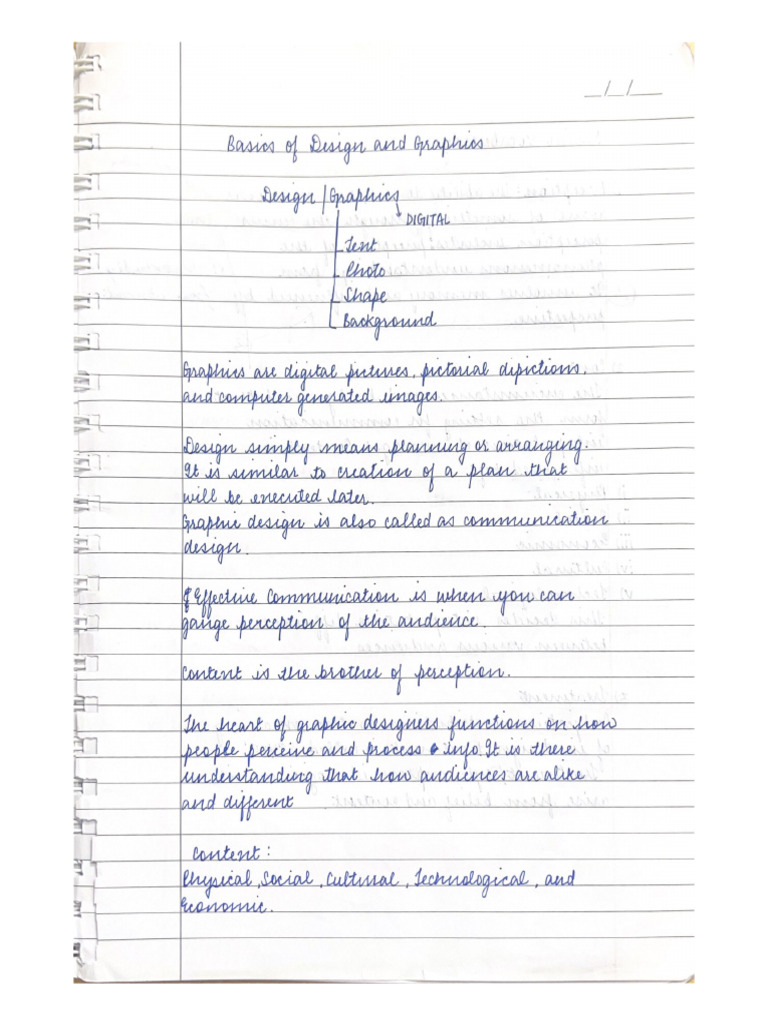 __/__/____
Basics of Design and Graphics
Design / Graphics
DIGITAL
Text
Photo
Shape
Background
Graphics are digital pictures, pictorial dipictions,
and computer generated images.
Design simply means planning or arranging.
It is similar to creation of a plan that
will be executed later.
Graphic design is also called as communication
design.
Effective Communication is when you can
gauge perception of the audience.
Context is the brother of perception.
The heart of graphic designers functions on how
people perceive and process info. It is there
understanding that how audiences are alike
and different.
Context:
Physical, Social, Cultural, Technological, and
Economic.